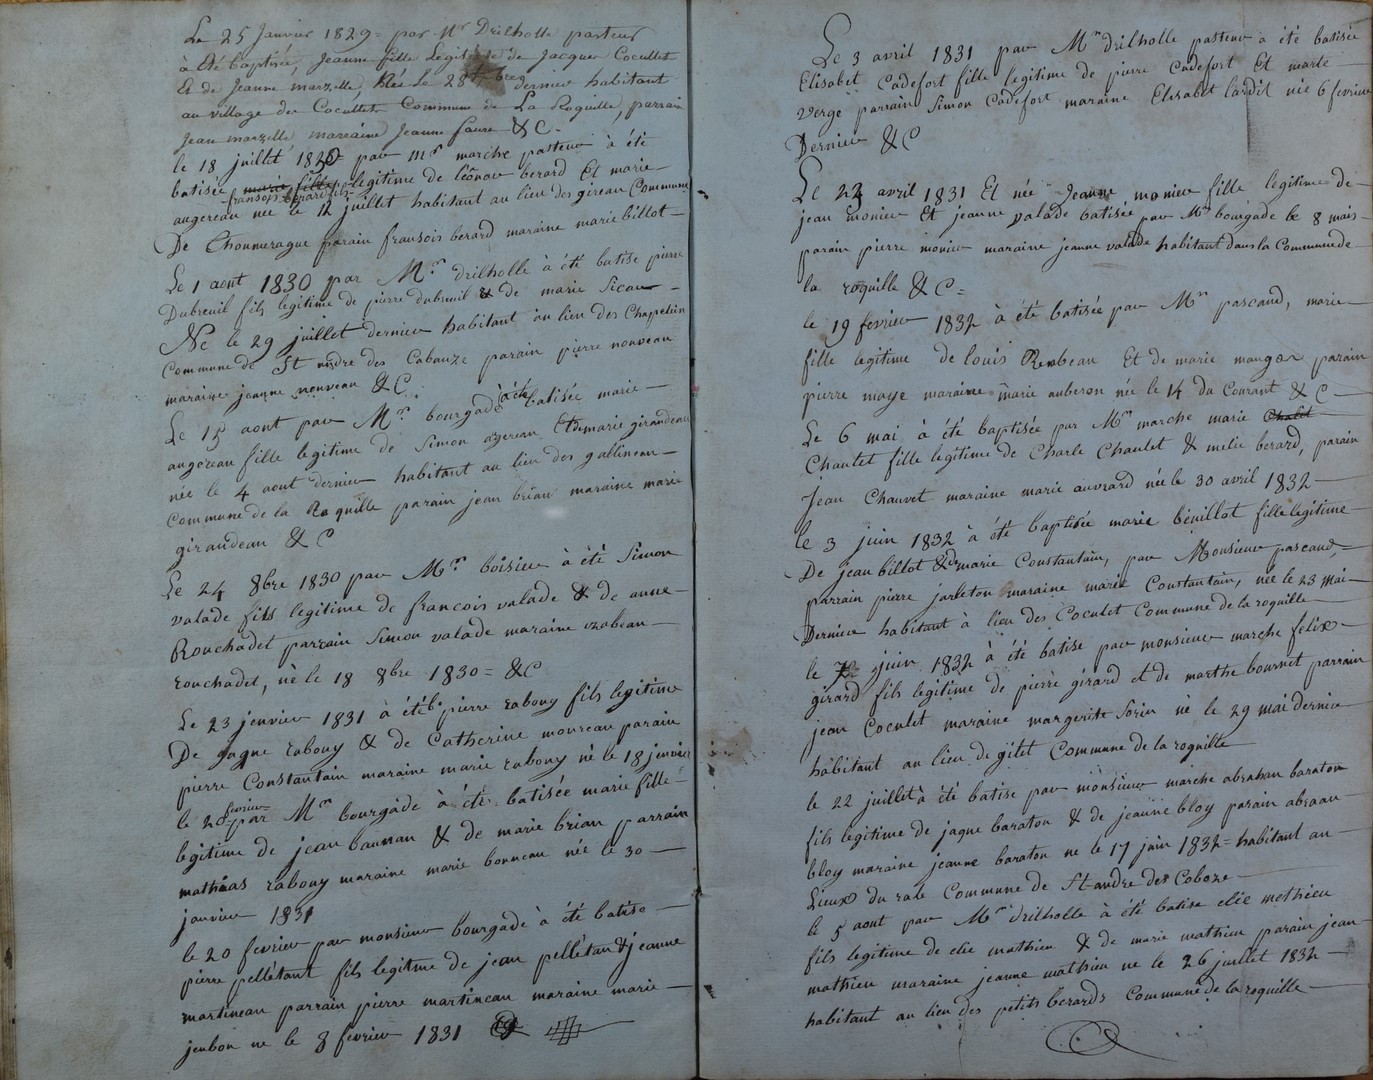 Le 25 Janvier 1829 = par Mr Drilholle pasteur
à été baptisée, Jeanne fille Légitime de Jacques Cocullet
Et de Jeanne marzelle, Née Le 28 dernier habitant
au village des Cocullet Commune de La Roquille, parrain
Jean marzelle marraine Jeanne faure & C.
le 18 juillet 1830 par mr marche pasteur à été
batisée marie fille legitime de léonar berard Et marie
fransois berard fils
angereau née le 12 juillet habitant au lieu des gireau Commune
De Thoumerague parain fransois berard maraine marie billot
Le 1 aout 1830 par Mr drilholle à été batise pierre
Dubreuil fils legitime de pierre dubreuil & de marie Sicau
Né le 29 juillet dernier habitant au lieu des Chapelein
Commune de St andre des Cabauze parain pierre nouveau
maraine jeanne nouveau & C
Le 15 aout par Mr bourgade à été batisée marie
angereau fille legitime de Simon angereau Et de marie girandeau
née le 4 aout dernier habitant au lieu des gallineau
Commune de la Roquille parain jean brian maraine marie
girandeau & C
Le 24 8bre 1830 par Mr boisieu à été Simon
valade fils legitime de francois valade & de anne
Rouchadet parrain Simon valade maraine izabeau
rouchadet, né le 18 8bre 1830 = & C
Le 23 jenvier 1831 à été b. pierre rabouy fils legitime
De jaque rabouy & de Catherine moureau parain
pierre Constantain maraine marie rabouy né le 18 jenvier
le 20 fevrier par Mr bourgade à été batisée marie fille
legitime de jean bauman & de marie brian parrain
mathias rabouy maraine marie bonneau née le 30
janvier 1831
le 20 fevrier par monsieur bourgade à été batise
pierre pellétant fils legitme de jean pellétan & jeanne
martineau parrain pierre martineau maraine marie
jeubon ne le 8 fevrier 1831
Le 3 avril 1831 par Mr drilholle pasteur a été batisée
Elisabet Cadefort fille legitime de pierre Cadefort Et marte
verge parrain Simon Cadefort maraine Elisabet Cardit née 6 fevrier
Dernier & C
Le 24 avril 1831 Et née Jeanne monieu fille legitime de
jean monieu Et jeanne valade batisée par Mr bourgade le 8 mais
parain pierre monieu maraine jeanne valade habitant dans la Commune de
la roquille & C =
le 19 fevrier 1832 à été batisée par Mr pascaud, marie
fille legitime de louis Rembeau Et de marie mangon parain
pierre maye maraine marie auberon née le 14 du Courant & C
Le 6 mai à été baptisée par Mr marche marie Chalet
Chaulet fille legitime de Charle Chaulet & melie berard, parain
Jean Chauvet maraine marie auvrard née le 30 avril 1832
le 3 juin 1832 à été baptisée marie béuillot fille legitime
De jean billot & de marie Constantain, par Monsieur pascaud,
parrain pierre jarleton maraine marie Constantain, née le 23 mai
Dernier habitant a lieu des Coculet Commune de la roquille
le juin 1832 à été batise par monsieur marche felix
girard fils legitime de pierre girard et de marthe bournet parrain
jean Coculet maraine margerite Sorin né le 29 mai dernier
habitant au lieu de gilet Commune de la roquille
le 22 juillet à été batise par monsieur marche abrahan baraton
fils legitime de jaque baraton & de jeanne bloy parain abraan
bloy maraine jeanne baraton né le 17 juin 1832 = habitant au
Lieux du rate Commune de St andre des Coboze
le 5 aout par Mr drilholle à été batise elie mathieu
fils legitime de elie mathieu & de marie mathieu parain jean
mathieu maraine jeanne mathieu ne le 26 juillet 1832
habitant au lieu des petits berards Commune de la roquille